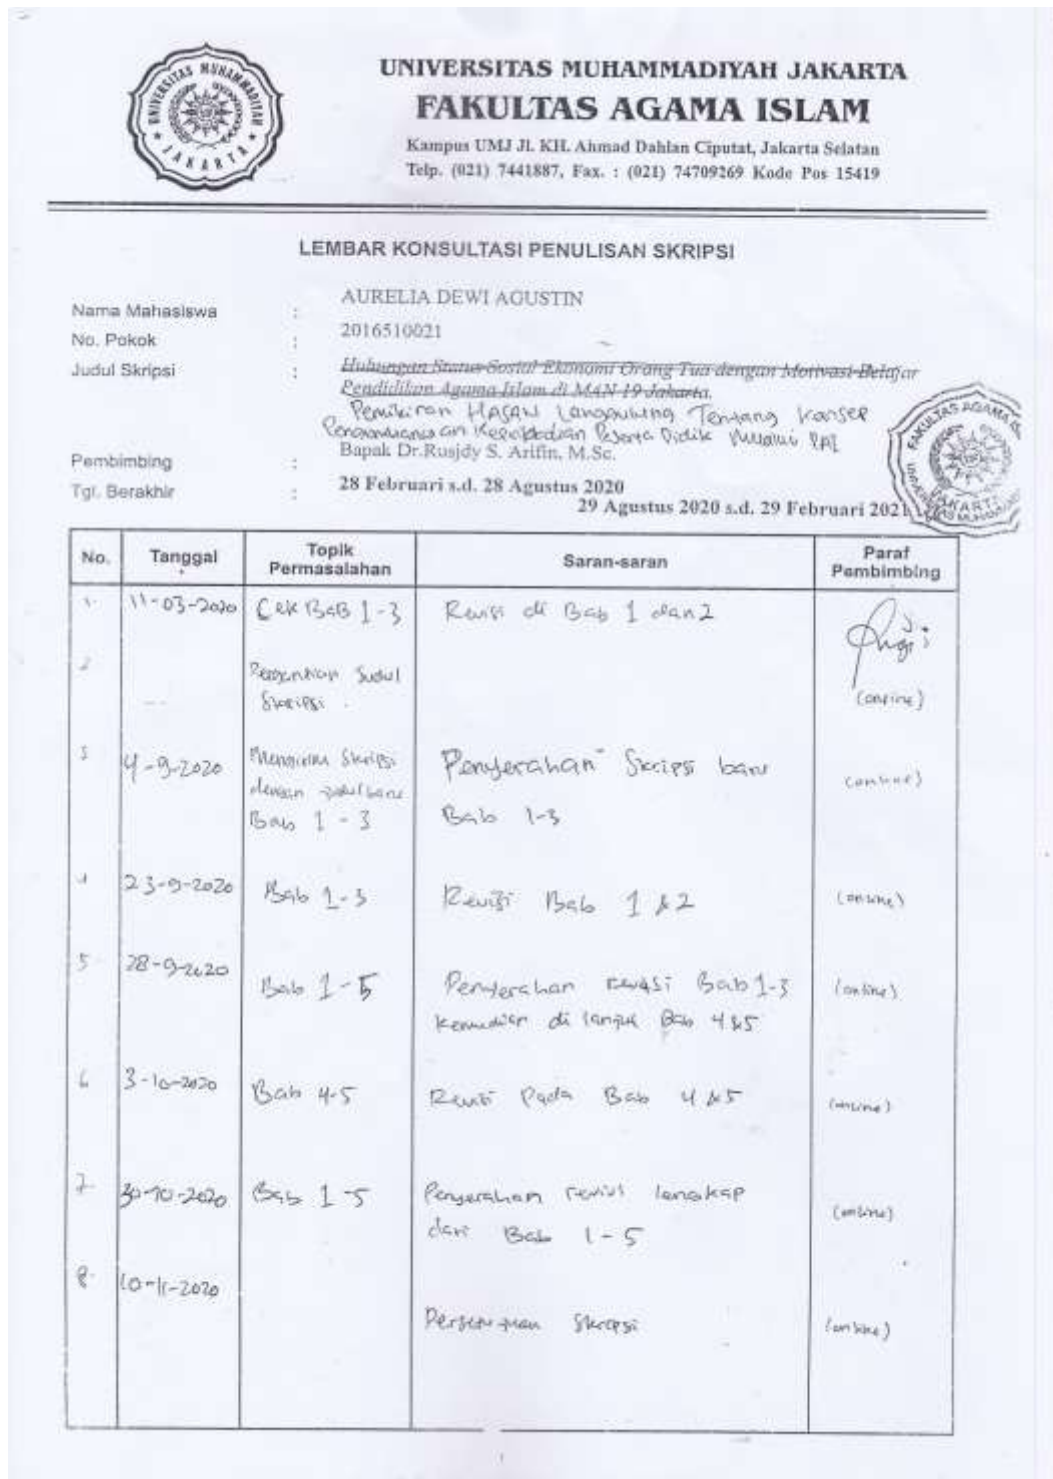 UNIVERSITAS MUHAMMADIYAH JAKARTA
FAKULTAS AGAMA ISLAM
Kampus UMJ Jl. KH. Ahmad Dahlan Ciputat, Jakarta Selatan
Telp. (021) 7441887, Fax. : (021) 74709269 Kode Pos 15419
UNIVERSITAS MUHAMMADIYAH
JAKARTA
LEMBAR KONSULTASI PENULISAN SKRIPSI
Nama Mahasiswa : AURELIA DEWI AGUSTIN
No. Pokok : 2016510021
Judul Skripsi : Hubungan Status Sosial Ekonomi Orang Tua dengan Motivasi Belajar
Pendidikan Agama Islam di MAN 19 Jakarta.
Pemikiran HASAN Langgulung Tentang Konsep
Kepribadian Peserta Didik Melalui PAI
Pembimbing : Bapak Dr.Rusjdy S. Arifin, M.Sc.
Tgl. Berakhir : 28 Februari s.d. 28 Agustus 2020
29 Agustus 2020 s.d. 29 Februari 2021
FAKULTAS AGAMA
JAKARTA
No. Tanggal Topik Permasalahan Saran-saran Paraf Pembimbing
1. 11-03-2020 Cek BAB 1-3 Revisi di Bab 1 dan 2
2 Pergantian Judul
Skripsi . (online)
3 4-9-2020 Mengirim Skripsi Penyerahan Skripsi baru (online)
dengan judul baru
Bab 1 - 3 Bab 1-3
4 23-9-2020 Bab 1-3 Revisi Bab 1 & 2 (online)
5 28-9-2020 Bab 1-5 Penyerahan revisi Bab 1-3 (online)
kemudian di lanjut Bab 4 & 5
6 3-10-2020 Bab 4-5 Revisi Pada Bab 4 & 5 (online)
7. 30-10-2020 Bab 1-5 Penyerahan revisi lengkap (online)
dari Bab 1-5
8. 10-11-2020 Persetujuan Skripsi (online)